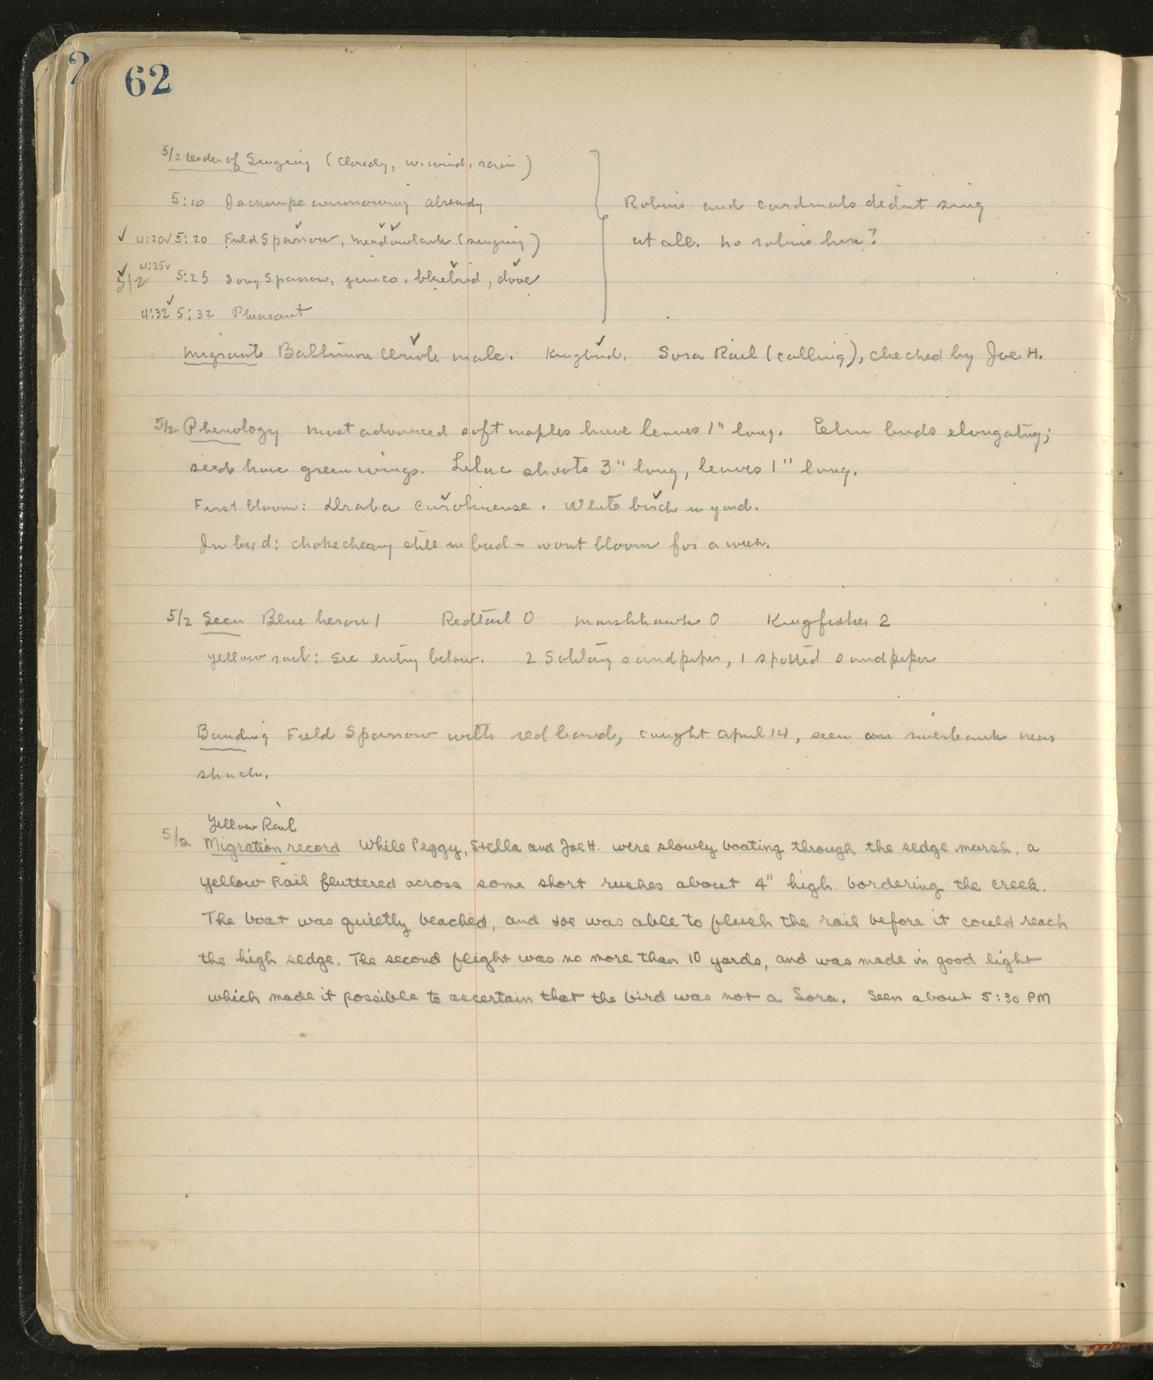 62
5/2 Order of Singing (Cloudy, w. wind, rain)
5:10 Jacksnipe winnowing already
4:20 5:20 Field Sparrow, meadowlark (singing)
5/2 4:25 5:25 Song Sparrow, junco, bluebird, dove
4:32 5:32 Pheasant
Robins and cardinals didnt sing
at all. No robins here?
Migrants Baltimore Oriole male. Kingbird. Sora Rail (calling), checked by Joe H.
5/2 Phenology Most advanced soft maples have leaves 1" long. Elm buds elongating;
seeds have green wings. Lilac shoots 3" long, leaves 1" long.
First bloom: Draba. White birch in yard.
In bud: chokecherry still in bud - wont bloom for a week.
5/2 Seen Blue heron 1 Redtail 0 Marshhawk 0 Kingfisher 2
yellow rail: See entry below. 2 Solitary sandpiper, 1 spotted sandpiper
Banding Field Sparrow with red band, caught April 14, seen on riverbank near
shack.
Yellow Rail
5/2 Migration record While Peggy, Stella and Joe H. were slowly boating through the sedge marsh, a
yellow Rail fluttered across some short rushes about 4" high bordering the creek.
The boat was quietly beached, and Joe was able to flush the rail before it could reach
the high sedge. The second flight was no more than 10 yards, and was made in good light
which made it possible to ascertain that the bird was not a Sora. Seen about 5:30 PM